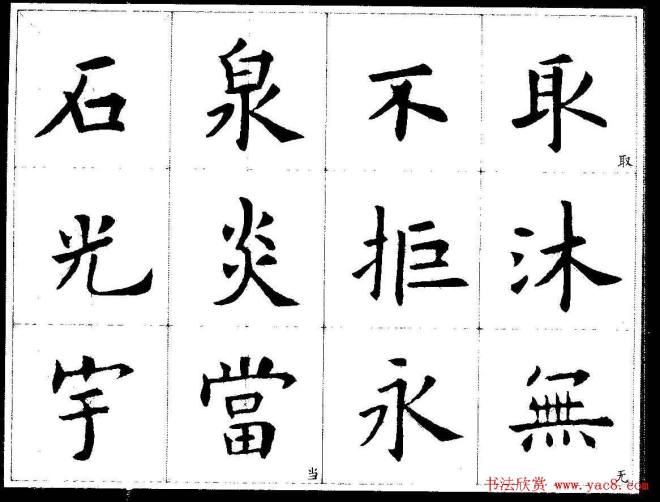 石 泉 不 取
取
光 炎 拒 沐
宇 當 永 無
当 无
书法欣赏 www.yac8.com